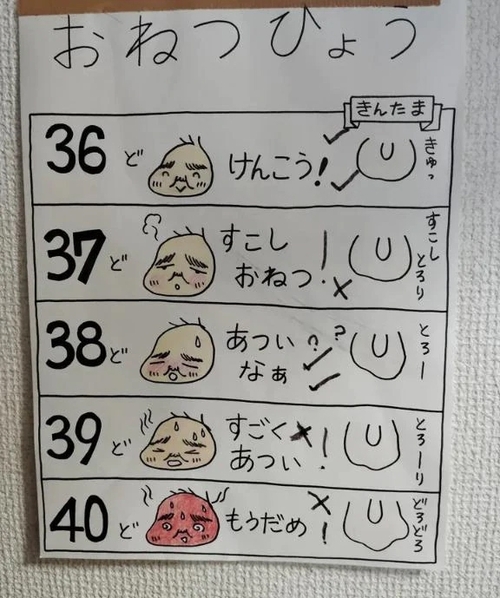 おねつひょう
きんたま
36ど けんこう! きゅっ
37ど すこし
おねつ! すこしとろり
38ど あつい??
なぁ とろー
39ど すごく
あつい! とろーり
40ど もうだめ! どろどろ